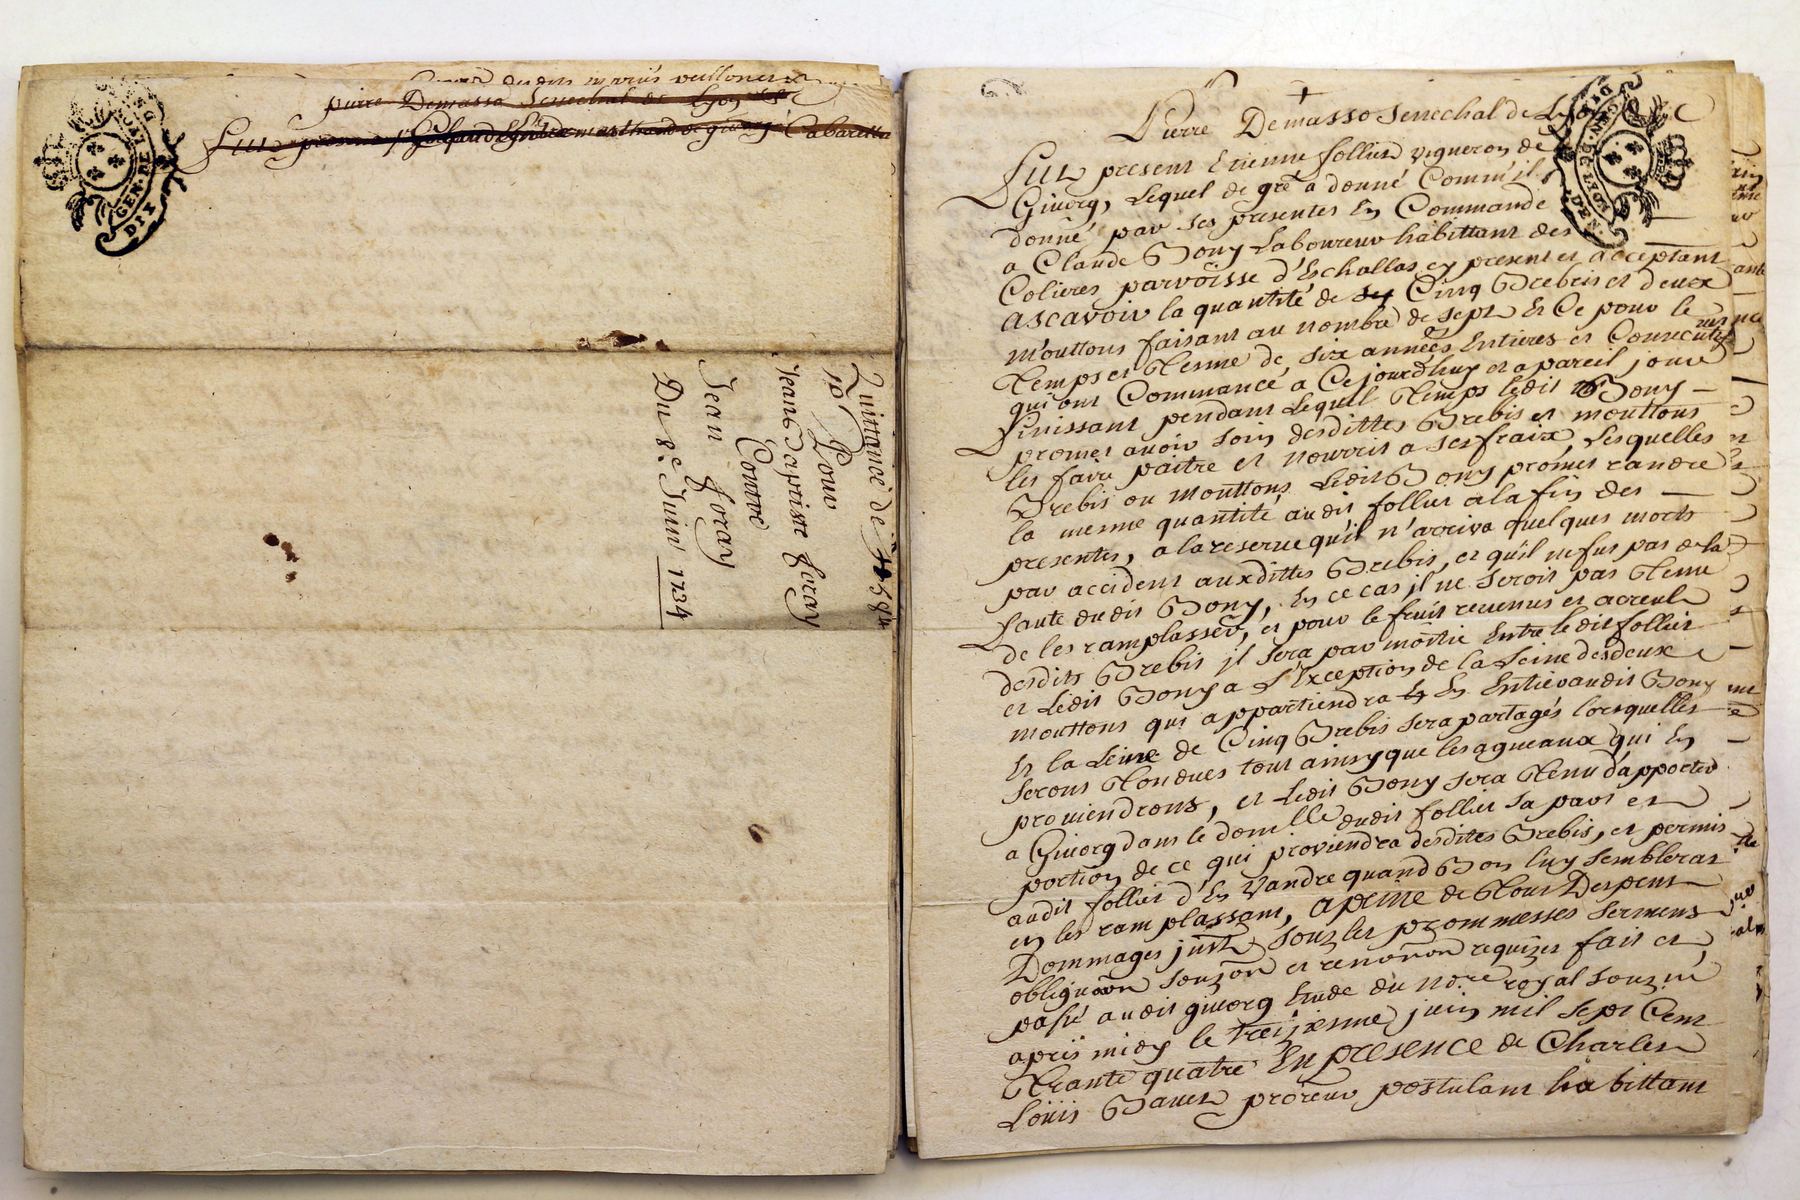 pierre Demasso Senechal de Lyon
GEN. DE
DIX
Quittance de
Pour
Jeane Baptiste Goray
Contre
Jean Goray
Du 8e Juin 1734
Pierre Demasso Senechal de Lyon
Fut present Etienne follier vigneron de
Givorg, Lequel de gré a donné Comm'il
donne par ses presentes En Commande
a Claude Bony Laboureur habittant des
Colieres parroisse d'Echallas cy present et acceptant
ascavoir la quantité de Cinq Brebis et deux
mouttons faisant au nombre de sept Et Ce pour le
Temps et Terme de six années Entieres et Consecutives
qui ont Commancé a Cejourd'huy et a pareil jour
finissant pendant Lequel Temps ledit Bony
promet avoir soin desdittes Brebis et mouttons
les faire paitre et nourrir a ses fraix, Lesquelles
Brebis ou Mouttons Ledit Bony promet randre
la mesme quantité audit follier a la fin des
presentes, a la reserve qu'il n'arriva quelques morts
par accident auxdittes Brebis, et qu'il ne fut pas de la
faute dudit Bony, En ce cas jl ne seroit pas Tenu
de les ramplasser, et pour le fruit revenus et acreul
desdits Brebis jl sera par moitié Entre ledit follier
et Ledit Bony a L'Exception de la Leine des deux
mouttons qui appartiendra En Entier audit Bony
Et la Leine de Cinq Brebis sera partagés lorsquelles
seront Tondues tout ainsy que les agneaux qui En
proviendront, et Ledit Bony sera Tenu d'apporter
a Givorg dans le domille dudit follier sa part et
portion de ce qui proviendra desdites Brebis, et permis
audit follier d'En Vandre quand Bon luy semblerat
en les ramplassant, a peine de Tous Despens
Dommages jnts souz les prommesses serments
obligaon souzon et renonon requizes fait et
passé audit givorg Etude du nore royal souz.né
apres midy le treizjesme juin mil sept Cent
Trante quatre En presence de Charles
Loüis Bauer procreur postulant habittant